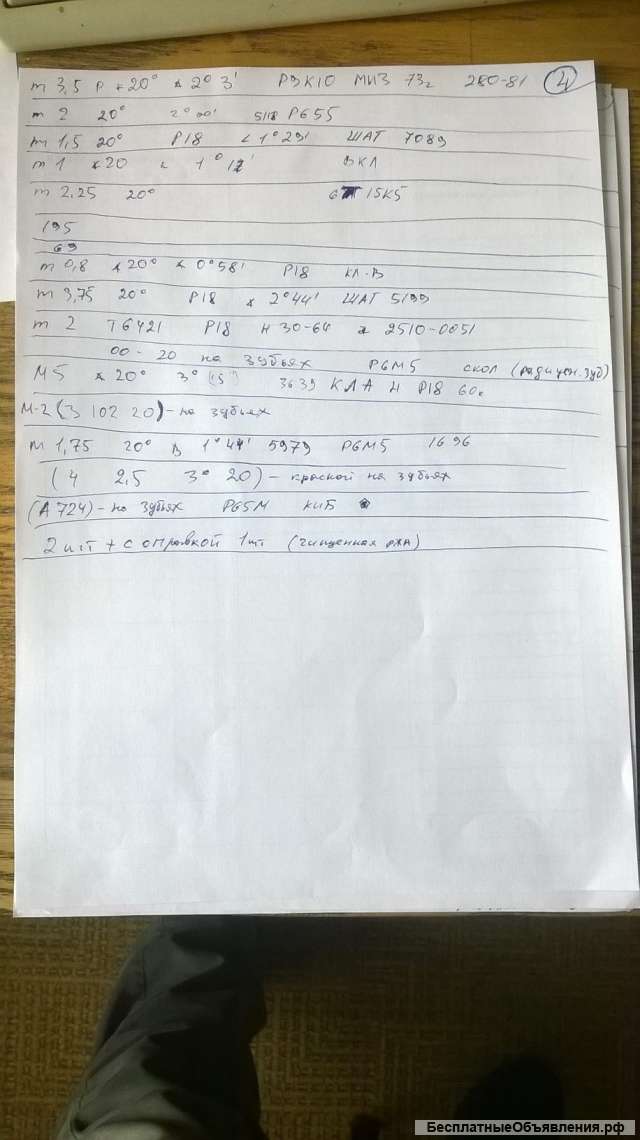 m 3,5 P ∢20° ∢ 2° 3' Р9К10 МИЗ 73г 280-81 4
m 2 20° 2°00' 5118 Р6М5
m 1,5 20° Р18 ∢1°29' ШАТ 7089
m 1 ∢20 ∢ 1° 12' ВКЛ
m 2,25 20° 15К5
195
69
m 0,8 ∢20° ∢ 0°58' Р18 кл.В
m 3,75 20° Р18 ∢ 2°44' ШАТ 5199
m 2 Т6421 Р18 Н30-64 2510-0051
00-20 на зубьях Р6М5 скол
М5 ∢20° 3° 15' 3639 КЛ А Н Р18 60г
М-2 (3 102 20) - на зубьях
m 1,75 20° В 1°44' 5979 Р6М5 1696
(4 2,5 3° 20) - краской на зубьях
(А 724) - на зубьях Р65М КИБ
2 шт + с оправкой 1шт (чищенная ржа)
БесплатныеОбъявления.рф